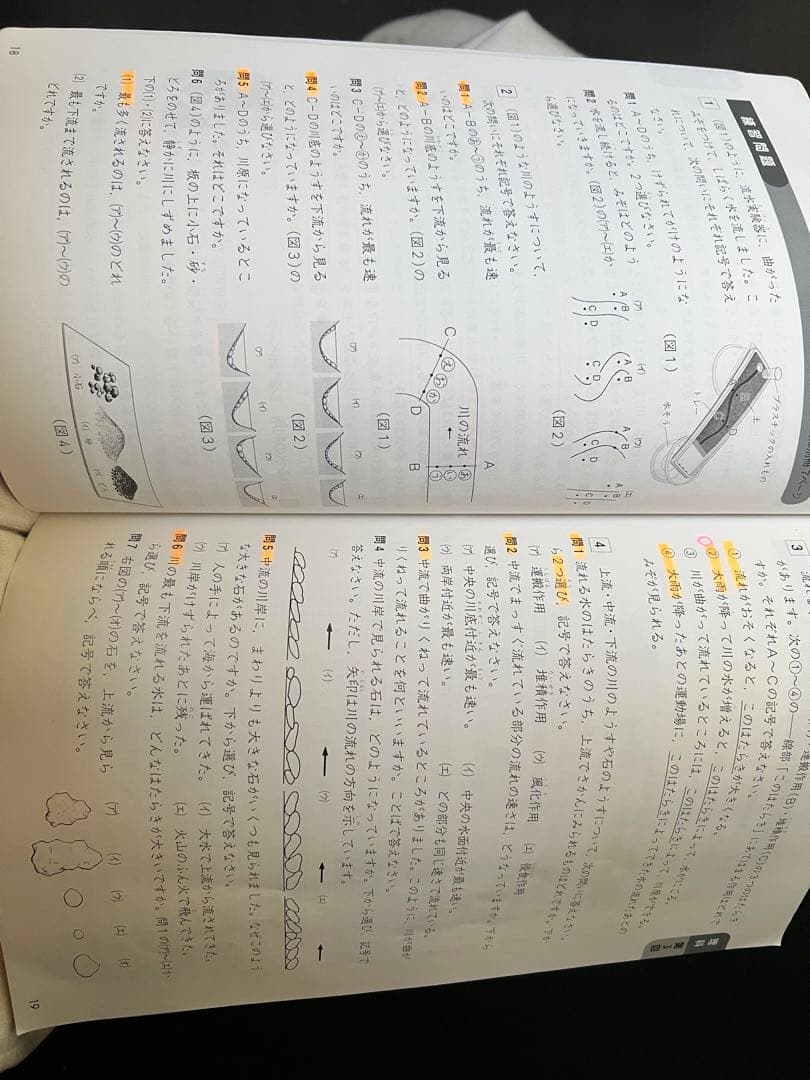 練習問題
1 (図1)のように、流水実験器に、曲がった
みぞをつけて、しばらく水を流しました。こ
れについて、次の問いにそれぞれ記号で答え
なさい。
問1 A～Dのうち、けずられてがけのようにな
るのはどこですか。2つ選びなさい。
問2 水を流し続けると、みぞはどのよう
になっていきますか。(図2)の(ア)～(エ)か
ら選びなさい。
プラスチックの入れもの
土
トレー
水そう
(図1)
(ア) (イ) (ウ) (エ)
A B C D
(図2)
2 (図1)のような川のようすについて、
次の問いにそれぞれ記号で答えなさい。
問1 A－Bのあ～うのうち、流れが最も速
いのはどこですか。
問2 A－Bの川底のようすを下流から見る
と、どのようになっていますか。(図2)の
(ア)～(エ)から選びなさい。
問3 C－Dのえ～かのうち、流れが最も速
いのはどこですか。
問4 C－Dの川底のようすを下流から見る
と、どのようになっていますか。(図3)の
(ア)～(エ)から選びなさい。
問5 A～Dのうち、川原になっているとこ
ろがありました。それはどこですか。
問6 (図4)のように、板の上に小石・砂・
どろをのせて、静かに川にしずめました。
下の(1)・(2)に答えなさい。
(1) 最も多く流されるのは、(ア)～(ウ)のどれ
ですか。
(2) 最も下流まで流されるのは、(ア)～(ウ)の
どれですか。
A
あ
い
う
B
川の流れ
C
え
お
か
D
(図1)
(ア) (イ) (ウ) (エ)
(図2)
(ア) (イ) (ウ) (エ)
(図3)
(ア) 小石
(イ) 砂
(ウ) どろ
(図4)
18
理科 第3回
3
があります。次の①～④の――線部「このはたらき」にあてはまる作用はどれで
すか。それぞれA～Cの記号で答えなさい。
① 流れがおそくなると、このはたらきが大きくなる。
② 大雨が降って川の水が増えると、このはたらきによって、水がにごる。
③ 川が曲がって流れているところには、このはたらきによって、川原ができる。
④ 大雨が降ったあとの運動場に、このはたらきによってできた水の流れたあとの
みぞが見られる。
4 上流・中流・下流の川のようすや石のようすについて、次の問いに答えなさい。
問1 流れる水のはたらきのうち、上流でさかんにみられるものはどれですか。下か
ら2つ選び、記号で答えなさい。
(ア) 運搬作用 (イ) 堆積作用 (ウ) 風化作用 (エ) 侵食作用
問2 中流でまっすぐ流れている部分の流れの速さは、どうなっていますか。下から
選び、記号で答えなさい。
(ア) 中央の川底付近が最も速い。 (イ) 中央の水面付近が最も速い。
(ウ) 両岸付近が最も速い。 (エ) どの部分も同じ速さで流れている。
問3 中流で曲がりくねって流れているところがありました。このように、川が曲が
りくねって流れることを何といいますか。ことばで答えなさい。
問4 中流の川岸で見られる石は、どのようになっていますか。下から選び、記号で
答えなさい。ただし、矢印は川の流れの方向を示しています。
(ア) (イ) (ウ) (エ)
問5 中流の川岸に、まわりよりも大きな石がいくつも見られました。なぜこのよう
な大きな石があるのですか。下から選び、記号で答えなさい。
(ア) 人の手によって海から運ばれてきた。 (イ) 大水で上流から流されてきた。
(ウ) 川岸がけずられたあとに残った。 (エ) 火山のふん火で飛んできた。
問6 川の最も下流を流れる水は、どんなはたらきが大きいですか。問1の(ア)～(エ)か
ら選び、記号で答えなさい。
問7 右図の(ア)～(オ)の石を、上流から見ら
れる順にならべ、記号で答えなさい。
(ア) (イ) (ウ) (エ) (オ)
19